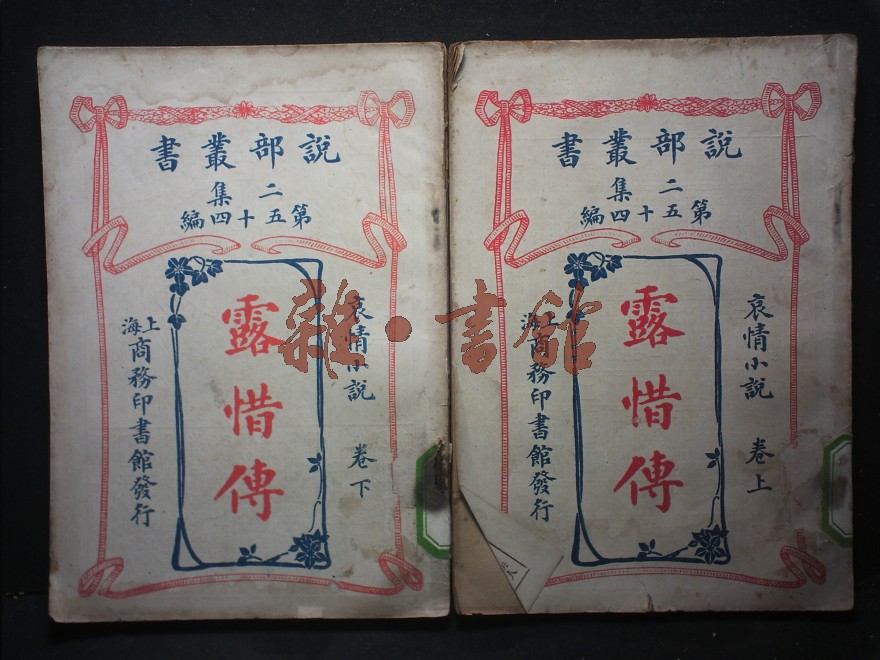 說部叢書
二集
第五十四編
哀情小說 卷上
露惜傳
上海商務印書館發行
說部叢書
二集
第五十四編
哀情小說 卷下
露惜傳
上海商務印書館發行
雜·書館